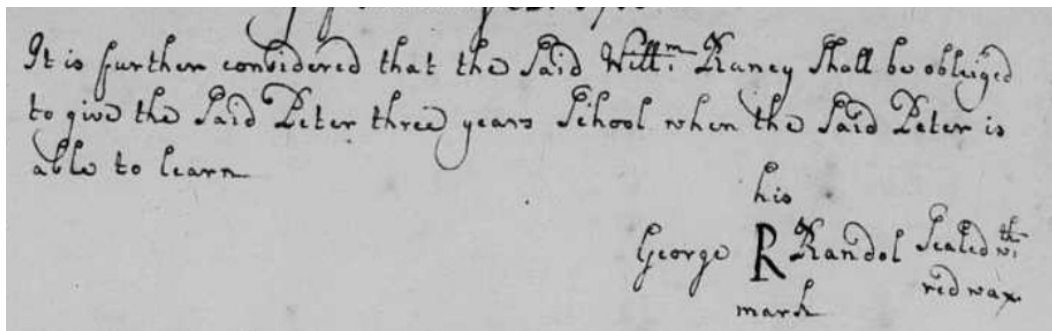 It is further considered that the Said Willm. Raney Shall be obleiged
to give the Said Peter three years School when the Said Peter is
able to learn
his
George R Randol Sealed wth.
mark red wax